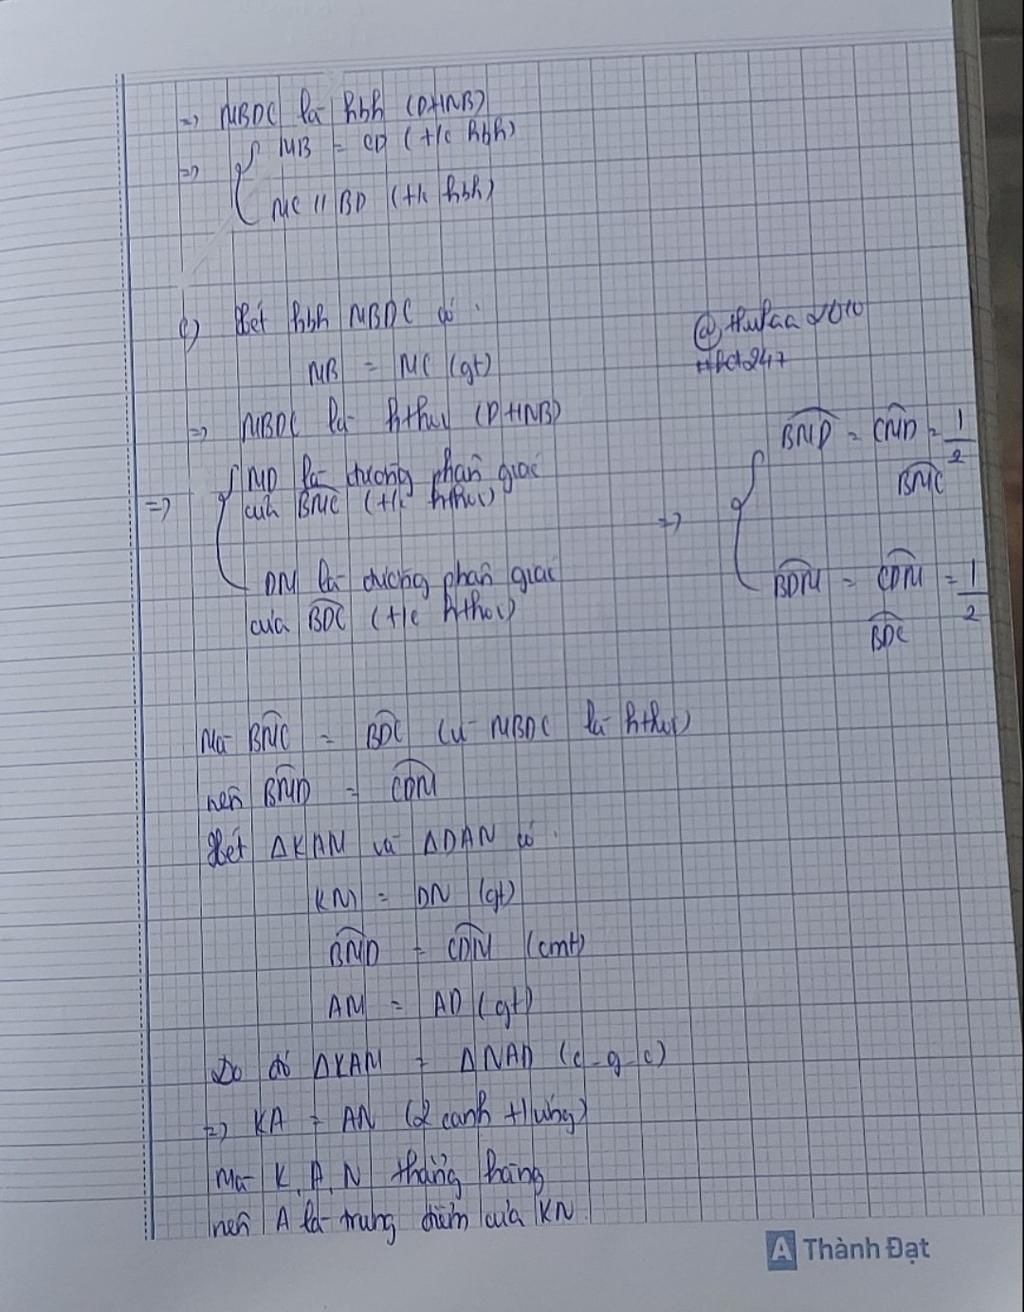 => MBDC là hbh (DHNB)
=> { MB = CD (t/c hbh)
MC // BD (t/c hbh)
c) Xét hbh MBDC có :
MB = MC (gt)
=> MBDC là hthoi (DHNB)
=> { MD là đường phân giác
của BMC (t/c hthoi)
DM là đường phân giác
của BDC (t/c hthoi)
@thulaa2010
=> { BMD = CMD = 1/2
BMC
BDM = CDM = 1/2
BDC
Mà BMC = BDC (vì MBDC là hthoi)
nên BMD = CDM
Xét ΔKAM và ΔDAN có :
KM = DN (gt)
BMD = CDM (cmt)
AM = AD (gt)
Do đó ΔKAM = ΔNAD (c-g-c)
=> KA = AN (2 cạnh t/ứng)
Mà K, A, N thẳng hàng
nên A là trung điểm của KN.
A Thành Đạt